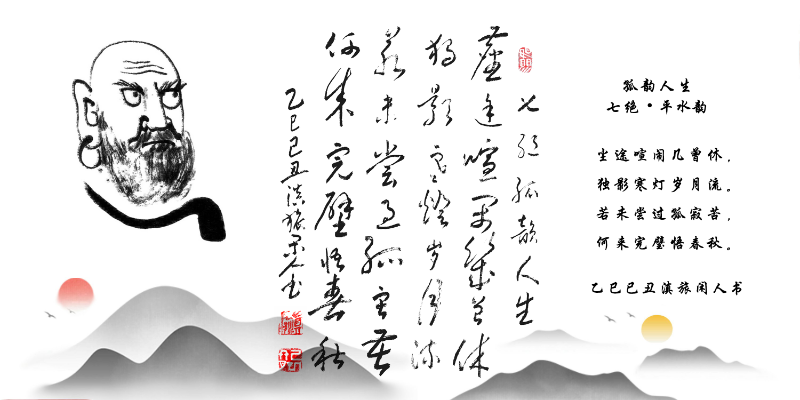 七绝孤韵人生
尘途喧闹几曾休
独影寒灯岁月流
若未尝过孤寂苦
何来完璧悟春秋
乙巳己丑滇旅闲人书
孤韵人生
七绝·平水韵
尘途喧闹几曾休，
独影寒灯岁月流。
若未尝过孤寂苦，
何来完璧悟春秋。
乙巳己丑滇旅闲人书